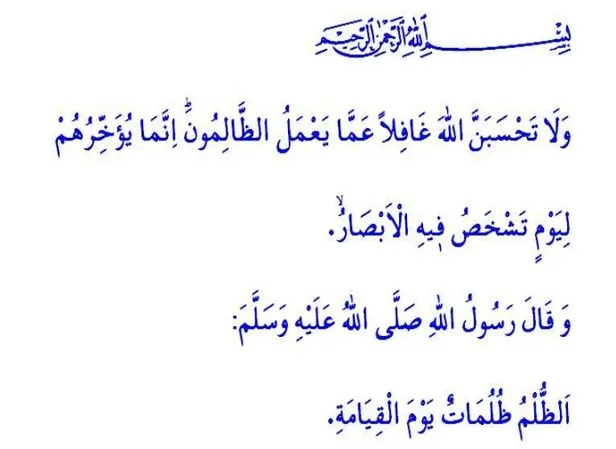 بِسْمِ اللهِ الرَّحْمٰنِ الرَّحِيمِ
وَلَا تَحْسَبَنَّ اللهَ غَافِلاً عَمَّا يَعْمَلُ الظَّالِمُونَۜ اِنَّمَا يُؤَخِّرُهُمْ
لِيَوْمٍ تَشْخَصُ فِيهِ الْاَبْصَارُۙ.
وَ قَالَ رَسُولُ اللهِ صَلَّى اللهُ عَلَيْهِ وَسَلَّمَ:
اَلظُّلْمُ ظُلُمَاتٌ يَوْمَ الْقِيَامَةِ.